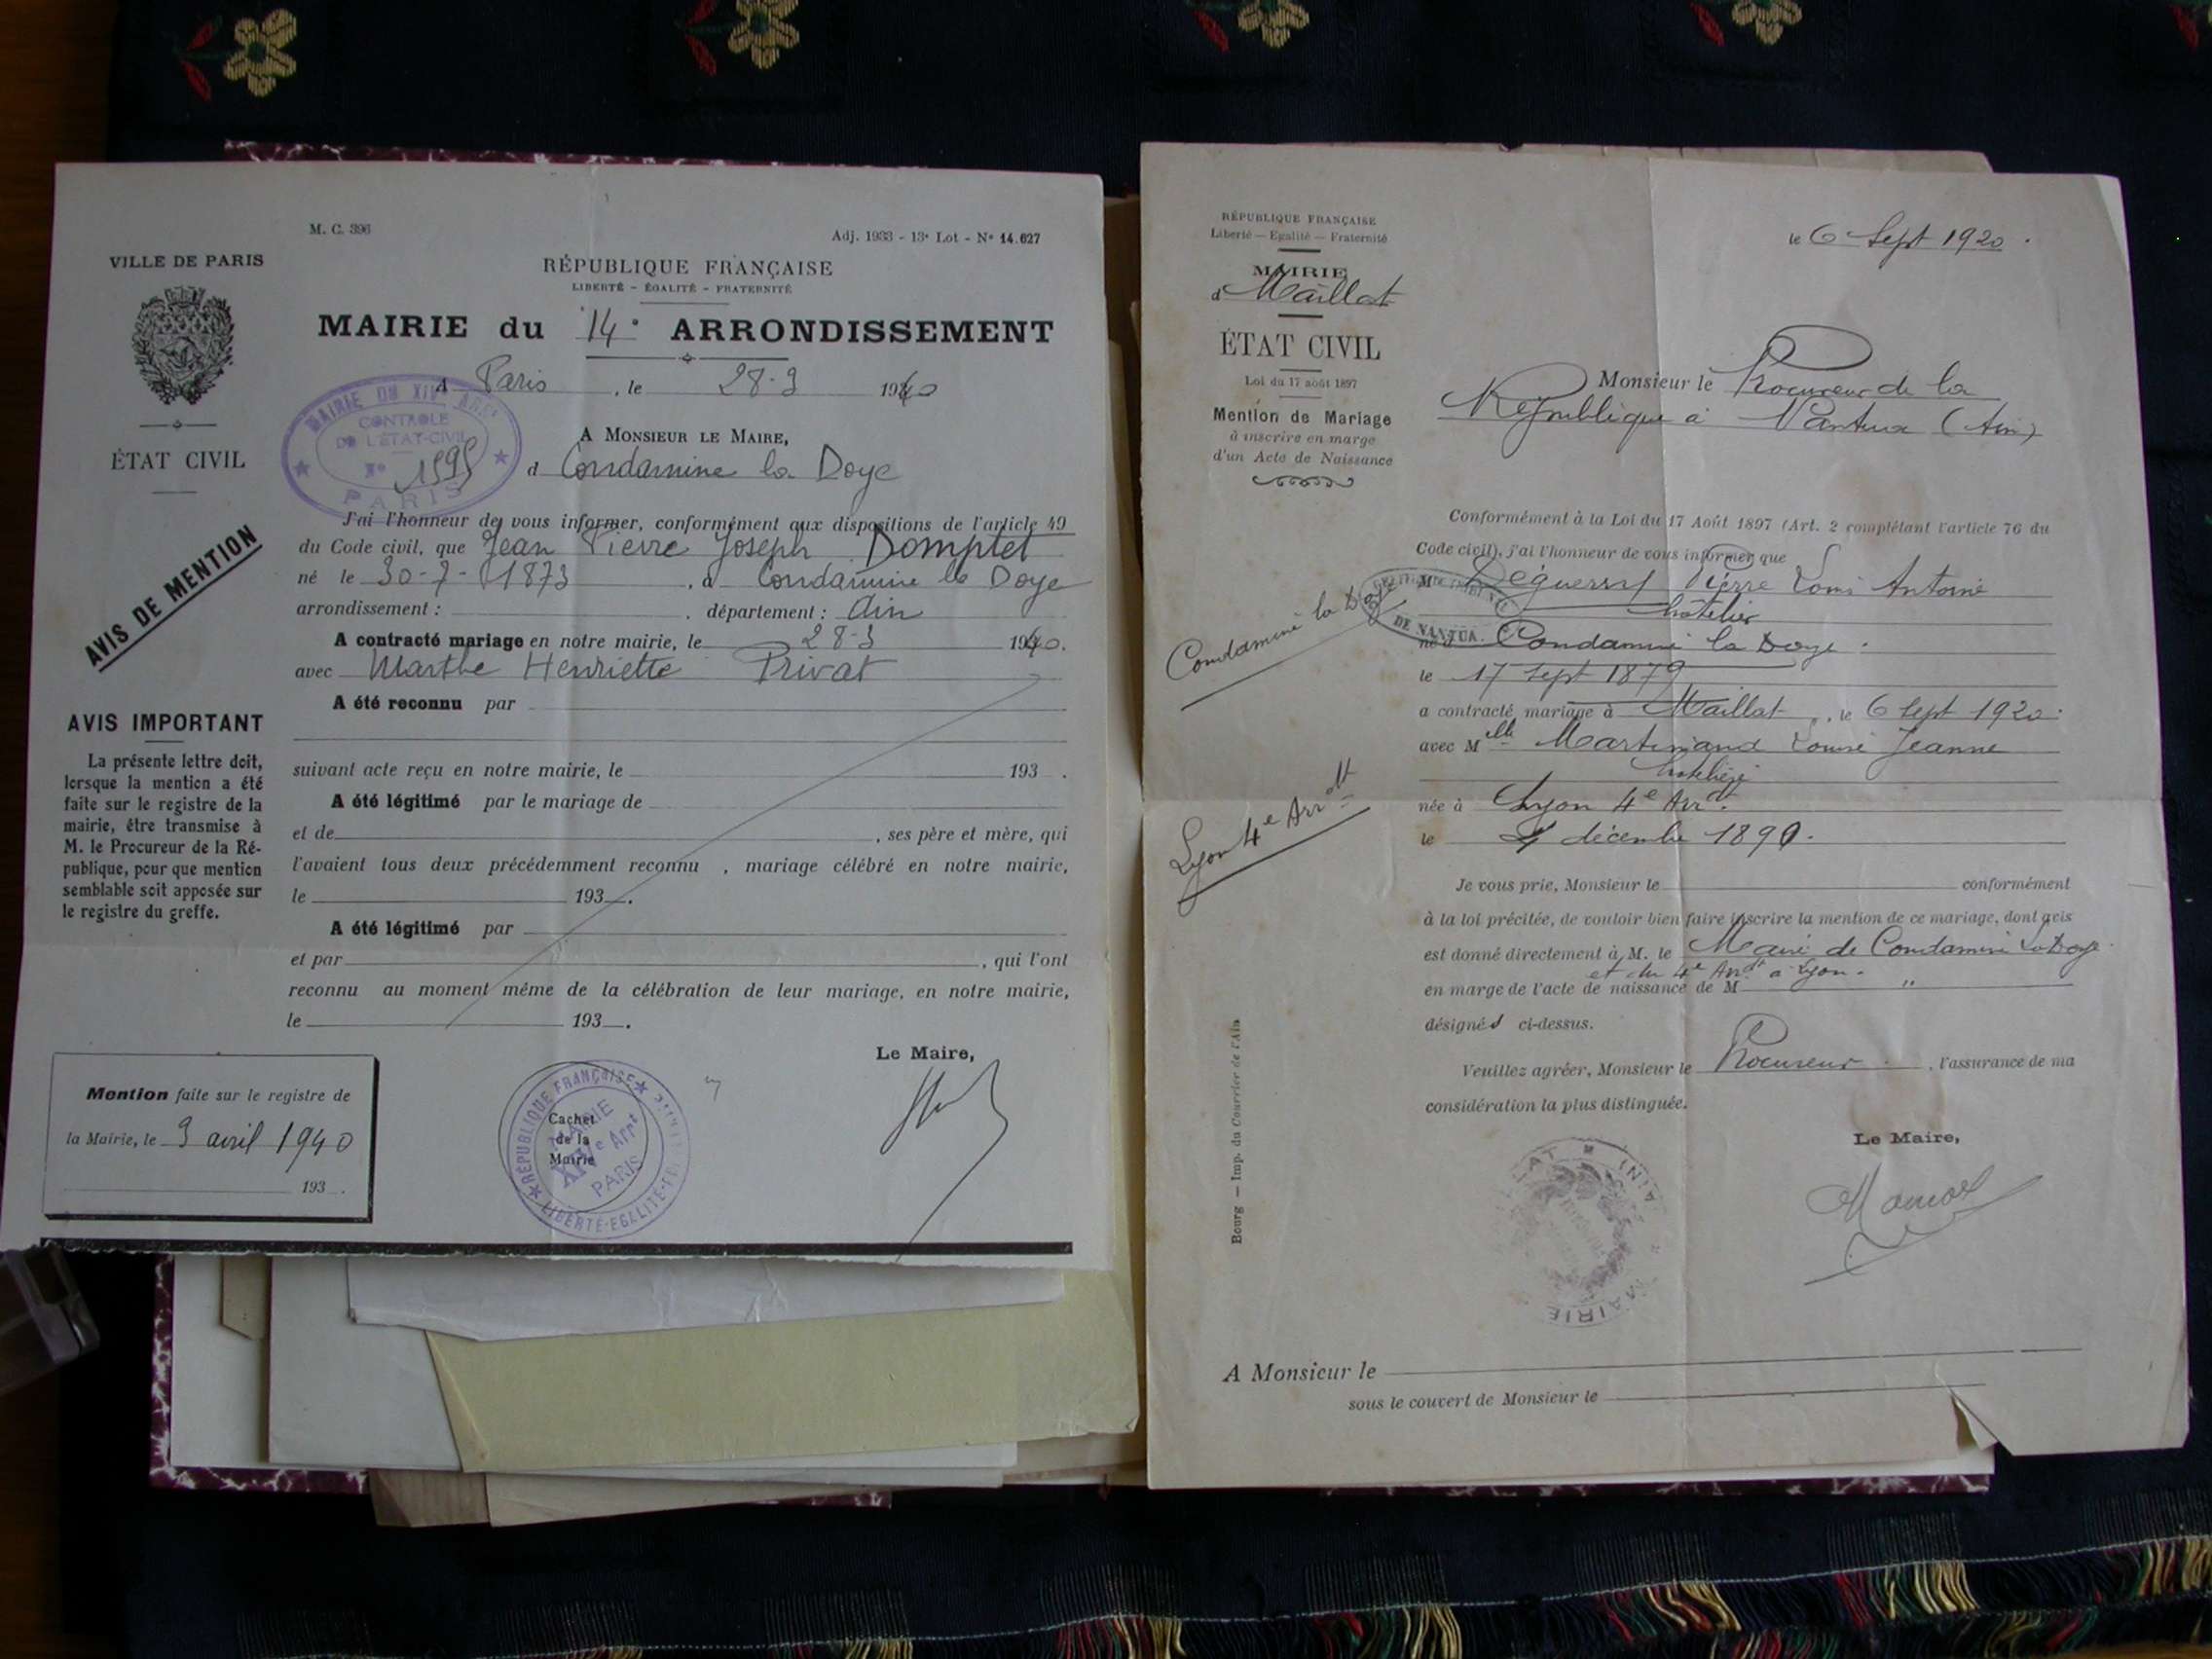 M. C. 396
Adj. 1933 - 13e Lot - No 14.627
VILLE DE PARIS
RÉPUBLIQUE FRANÇAISE
LIBERTÉ - ÉGALITÉ - FRATERNITÉ
MAIRIE du 14e ARRONDISSEMENT
A Paris, le 28-3 1940
MAIRIE DU XIVe ARRt
CONTROLE
DE L'ETAT-CIVIL
No 1595
PARIS
ÉTAT CIVIL
A MONSIEUR LE MAIRE,
d Condamine la Doye
AVIS DE MENTION
J'ai l'honneur de vous informer, conformément aux dispositions de l'article 49
du Code civil, que Jean Pierre Joseph Domptet
né le 30-7-1873, à Condamine la Doye
arrondissement : . département : Ain
A contracté mariage en notre mairie, le 28-3 1940.
avec Marthe Henriette Privat
A été reconnu par
suivant acte reçu en notre mairie, le 193 .
A été légitimé par le mariage de
et de , ses père et mère, qui
l'avaient tous deux précédemment reconnu , mariage célébré en notre mairie,
le 193 .
A été légitimé par
et par , qui l'ont
reconnu au moment même de la célébration de leur mariage, en notre mairie,
le 193 .
AVIS IMPORTANT
La présente lettre doit,
lorsque la mention a été
faite sur le registre de la
mairie, être transmise à
M. le Procureur de la Ré-
publique, pour que mention
semblable soit apposée sur
le registre du greffe.
Le Maire,
Mention faite sur le registre de
la Mairie, le 3 avril 1940
193 .
Cachet
de la
Mairie
RÉPUBLIQUE FRANÇAISE
MAIRIE
XIVe Arrt
PARIS
LIBERTÉ-EGALITÉ-
RÉPUBLIQUE FRANÇAISE
Liberté — Egalité — Fraternité
le 6 Sept 1920.
MAIRIE
d Maillat
ÉTAT CIVIL
Loi du 17 août 1897
Mention de Mariage
à inscrire en marge
d'un Acte de Naissance
Monsieur le Procureur de la
République à Nantua (Ain)
Conformément à la Loi du 17 Août 1897 (Art. 2 complétant l'article 76 du
Code civil), j'ai l'honneur de vous informer que
M Déguerry Pierre Louis Antoine
hôtelier
DE NANTUA.
né à Condamine la Doye.
Condamine la Doye
le 17 Sept 1879
a contracté mariage à Maillat, le 6 Sept 1920.
avec Melle Martinand Louise Jeanne
hôtelière
née à Lyon 4e Arrdt.
Lyon 4e Arrdt
le 4 décembre 1890.
Je vous prie, Monsieur le conformément
à la loi précitée, de vouloir bien faire inscrire la mention de ce mariage, dont avis
est donné directement à M. le Maire de Condamine La Doye
et du 4e Arrdt à Lyon.
en marge de l'acte de naissance de M "
désignés ci-dessus.
Veuillez agréer, Monsieur le Procureur, l'assurance de ma
considération la plus distinguée.
Le Maire,
MAIRIE
Bourg — Imp. du Courrier de l'Ain
A Monsieur le
sous le couvert de Monsieur le